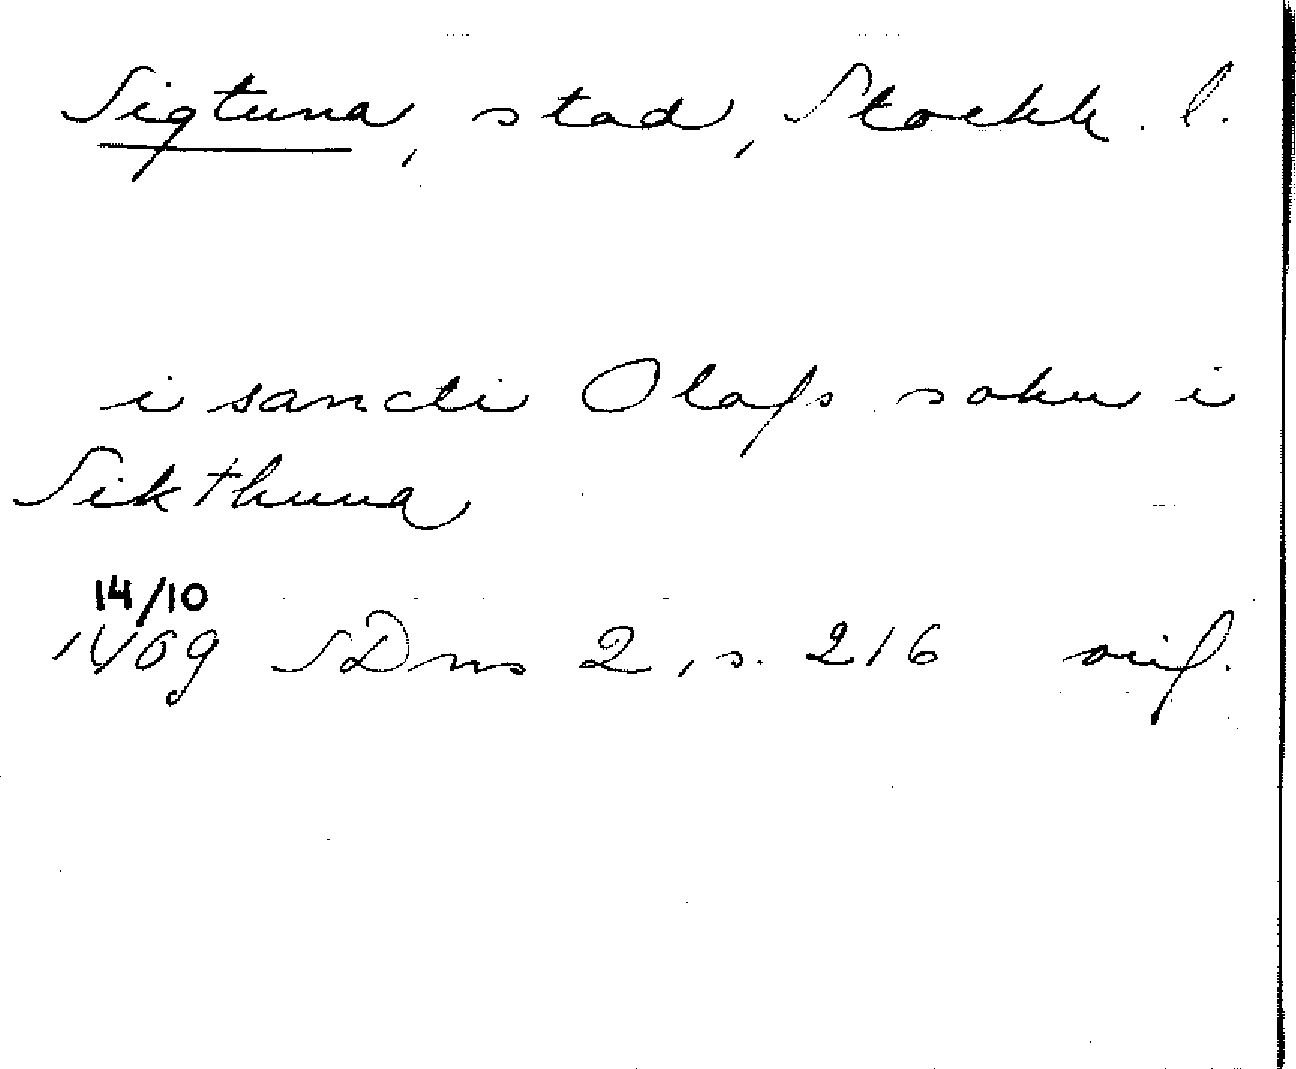 Sigtuna, stad, Stockh. l.
i sancti Olafs sokn i
Sikthuna
14/10
1409 SDns 2, s. 216 orif.